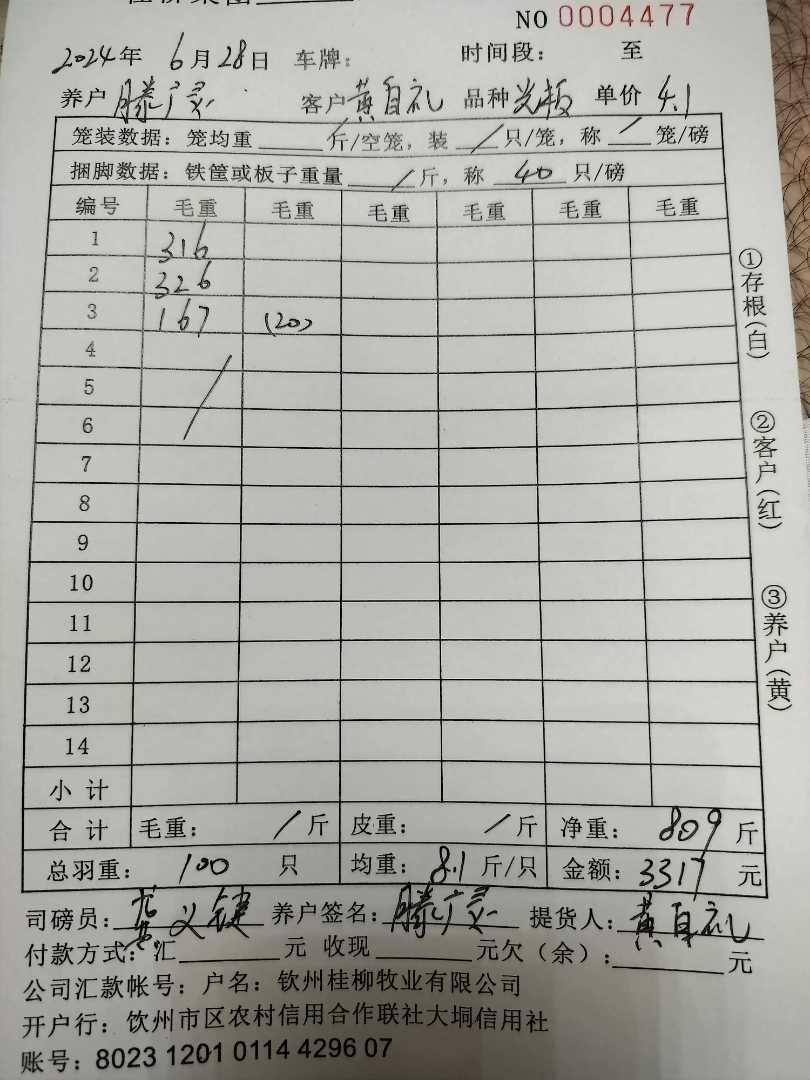 NO 0004477
2024年 6月28日 车牌: 时间段: 至
养户 滕广灵 客户 黄自礼 品种 光板 单价 4.1
笼装数据: 笼均重 / 斤/空笼, 装 / 只/笼, 称 / 笼/磅
捆脚数据: 铁筐或板子重量 / 斤, 称 40 只/磅
编号 毛重 毛重 毛重 毛重 毛重 毛重
1 316
2 326
3 167 (20)
4
5 /
6
7
8
9
10
11
12
13
14
小计
合计 毛重: / 斤 皮重: / 斤 净重: 809 斤
总羽重: 100 只 均重: 8.1 斤/只 金额: 3317 元
司磅员: 义键 养户签名: 滕广灵 提货人: 黄自礼
付款方式: 汇 元 收现 元欠(余): 元
公司汇款帐号: 户名: 钦州桂柳牧业有限公司
开户行: 钦州市区农村信用合作联社大垌信用社
账号: 8023 1201 0114 4296 07
①存根(白)
②客户(红)
③养户(黄)